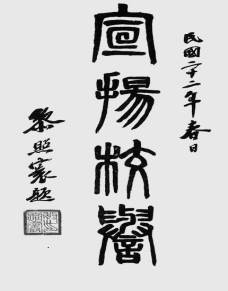 民國二十二年春日
宣揚校譽
黎照寰題